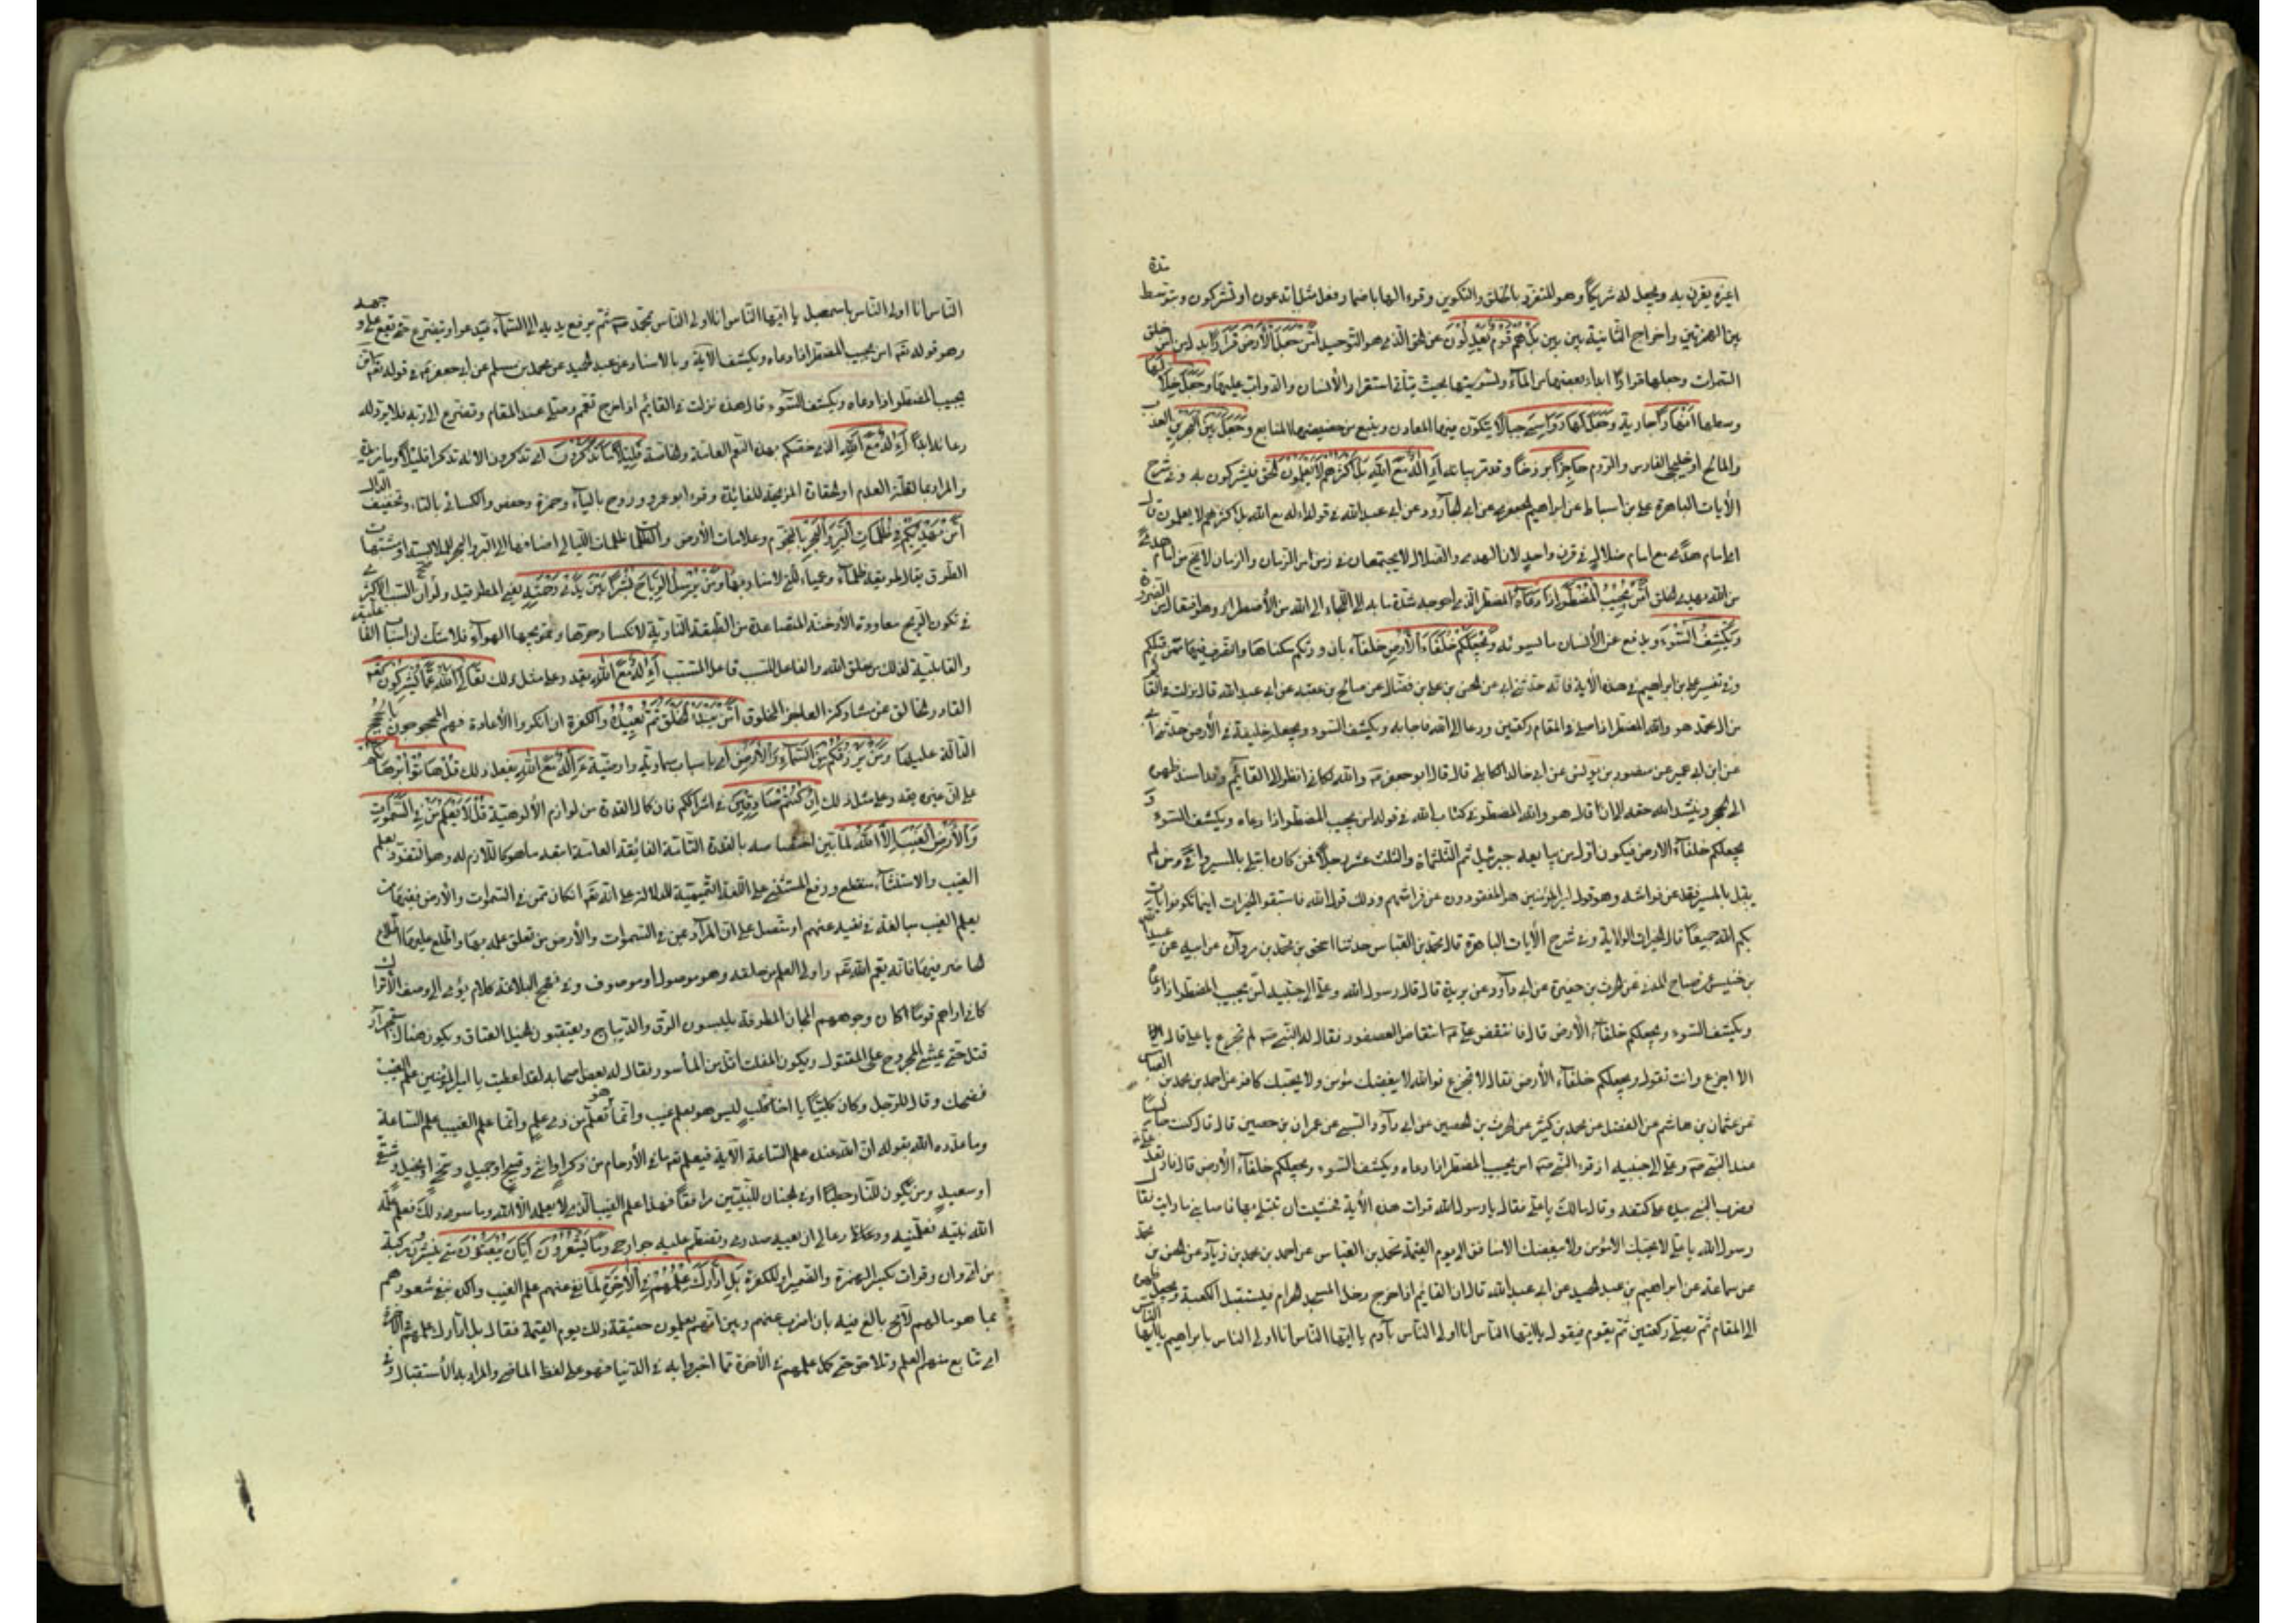 اغيره يقرن به ويجعل له شريكا وهو المتفرد بالخلق والتكوين وقرء الها باضمار فعل مثل اتدعون او تشركون وبتوسط مدة
بين الهمزتين واخراج الثانية بين بين بَلْ هُمْ قَوْمٌ يَعْدِلُونَ عن الحق الذي هو التوحيد أَمَّنْ جَعَلَ الْأَرْضَ قَرَارًا بدل من امن خلق
السموات وجعلها قرارا بابداء بعضها من الماء وتسويتها بحيث يتأتى استقرار الأنسان والدواب عليها وَجَعَلَ خِلَالَهَا
وسطها أَنْهَارًا جارية وَجَعَلَ لَهَا رَوَاسِيَ جبالا يتكون فيها المعادن وينبع من حضيضها المنابع وَجَعَلَ بَيْنَ الْبَحْرَيْنِ العذب
والمالح او خليجي الفارس والروم حَاجِزًا برزخا وقد مر بيانه أَإِلَهٌ مَعَ اللَّهِ بَلْ أَكْثَرُهُمْ لَا يَعْلَمُونَ الحق فيشركون به وفي شرح
الأيات الباهرة علي بن اسباط عن ابراهيم الجعفري عن ابي الجارود عن ابي عبد الله في قوله اءله مع الله بل اكثرهم لا يعلمون قال
اي امام هدى مع امام ضلال في قرن واحد لان الهدى والضلال لا يجتمعان في زمن من الزمان والزمان لا يخ من امام هدى
من الله يهدي الخلق أَمَّنْ يُجِيبُ الْمُضْطَرَّ إِذَا دَعَاهُ المضطر الذي احوجه شدة ما به الى اللجاء الى الله من الأضطرار وهو افتعال من الضرورة
وَيَكْشِفُ السُّوءَ ويدفع عن الأنسان ما يسوئه وَيَجْعَلُكُمْ خُلَفَاءَ الْأَرْضِ خلفاء بان ورثكم سكناها والتصرف فيها ممن قبلكم
وفي تفسير علي بن ابراهيم في هذه الأية فانه حدثني ابي عن الحسن بن علي بن فضال عن صالح بن عقبه عن ابي عبد الله قال نزلت في القائم
من ال محمد هو والله المضطر اذا صلى في المقام ركعتين ودعا الى الله فاجابه ويكشف السوء ويجعله خليفة في الأرض حدثني ابي
عن ابن ابي عمير عن منصور بن يونس عن ابي خالد الكابلي قال قال ابو جعفر والله لكاني انظر الى القائم وقد اسند ظهره
الى الحجر وينشد الله حقه الى ان قال هو والله المضطر في كتاب الله في قوله امن يجيب المضطر اذا دعاه ويكشف السوء و
يجعلكم خلفاء الارض فيكون اول من يبايعه جبرئيل ثم الثلثماة والثلث عشر رجلا فمن كان ابتلي بالمسير وافى ومن لم
يقبل بالمسير فقد عن فراشه وهو قول امير المؤمنين هم المفقودون عن فرشهم وذلك قول الله فاستبقوا الخيرات اينما تكونوا يات
بكم الله جميعا قال الخيرات الولاية وفي شرح الأيات الباهرة قال محمد بن العباس حدثنا اسحق بن محمد بن مروان عن ابيه عن عبيد الله
بن خنيس عن صباح المدني عن الحرث بن حصيرة عن ابي داود عن بريدة قال قال رسول الله وعلي الى جنبه امن يجيب المضطر اذا دعاه
ويكشف السوء ويجعلكم خلفاء الأرض قال فانتقض علي انتقاض العصفور فقال له النبي لم تجزع يا علي قال
الا اجزع وانت تقول ويجعلكم خلفاء الأرض فقال لا تجزع فوالله لا يبغضك مؤمن ولا يحبك كافر عن احمد بن محمد بن العباس
عن عثمان بن هاشم عن الفضل عن محمد بن كثير عن الحرث بن الحصين عن ابي داود السبيعي عن عمران بن حصين قال قال كنت جالسا
عند النبي وعلي الى جنبه اذ قرء النبي امن يجيب المضطر اذا دعاه ويكشف السوء ويجعلكم خلفاء الأرض قال فارتعد علي
فضرب النبي بيده على كتفه وقال مالك يا علي فقال يا رسول الله قرات هذه الأية فخشيت ان نبتلى بها فاصابني ما رايت فقال
رسول الله يا علي لا يحبك الا مؤمن ولا يبغضك الا منافق الى يوم القيمة محمد بن العباس عن احمد بن محمد بن زياد عن الحسن بن محمد
عن سماعة عن ابراهيم بن عبد الحميد عن ابي عبد الله قال ان القائم اذا خرج دخل المسجد الحرام فيستقبل الكعبة ويجعل ظهره
الى المقام ثم يصلي ركعتين ثم يقوم فيقول يا ايها الناس انا اولى الناس بآدم يا ايها الناس انا اولى الناس بابراهيم يا ايها الناس
الناس انا اولى الناس باسمعيل يا ايها الناس انا اولى الناس بمحمد ثم يرفع يديه الى السماء فيدعوا ويتضرع حتى يقع على وجهه
وهو قوله تعه امن يجيب المضطر اذا دعاه ويكشف الاية وبالاسناد عن عبد الحميد عن محمد بن مسلم عن ابي جعفر في قوله تعه امن
يجيب المضطر اذا دعاه ويكشف السوء قال هذه نزلت في القائم اذا خرج تعمم وصلى عند المقام وتضرع الى ربه فلا يرد له
راية ابدا أَإِلَهٌ مَعَ اللَّهِ الذي خصكم بهذه النعم العامة والخاصة قَلِيلًا مَا تَذَكَّرُونَ اي تذكرون الائه تذكرا قليلا وما مزيدة
والمراد بالقلة العدم او الحقارة المزيحة للفائدة وقرء ابو عمرو وروح بالياء وحمزة وحفص والكسائي بالتاء وتخفيف الذال
أَمَّنْ يَهْدِيكُمْ فِي ظُلُمَاتِ الْبَرِّ وَالْبَحْرِ بالنجوم وعلامات الأرض والظلمات ظلمات الليالي اضافها الى البر والبحر للملابسة او مشتبهات
الطرق يقال طريقة ظلماء وعمياء للتي لا منار بها وَمَنْ يُرْسِلُ الرِّيَاحَ بُشْرًا بَيْنَ يَدَيْ رَحْمَتِهِ يعني المطر قيل ولو ان السبب الأكثري
في تكون الريح معاودة الأدخنة المتصاعدة من الطبقة الباردة لانكسار حرها وتمويجها الهواء فلا شك ان اسباب الفاعلية
والقابلية لذلك من خلق الله والفاعل للسبب فاعل المسبب أَإِلَهٌ مَعَ اللَّهِ يقدر على مثل ذلك تَعَالَى اللَّهُ عَمَّا يُشْرِكُونَ
القادر الخالق عن مشاركة العاجز المخلوق أَمَّنْ يَبْدَأُ الْخَلْقَ ثُمَّ يُعِيدُهُ والكفرة ان انكروا الأعادة فهم محجوجون بالحجج
الدالة عليها وَمَنْ يَرْزُقُكُمْ مِنَ السَّمَاءِ وَالْأَرْضِ اي باسباب سماوية وارضية أَإِلَهٌ مَعَ اللَّهِ يفعل ذلك قُلْ هَاتُوا بُرْهَانَكُمْ
على ان غيره يقدر على مثل ذلك إِنْ كُنْتُمْ صَادِقِينَ في اشراككم فان كمال القدرة من لوازم الألوهية قُلْ لَا يَعْلَمُ مَنْ فِي السَّمَوَاتِ
وَالْأَرْضِ الْغَيْبَ إِلَّا اللَّهُ لما بين اختصاصه بالقدرة التامة الفائقة العامة اتبعه ما هو كاللازم له وهو التفرد بعلم
الغيب والاستثناء منقطع ورفع المستثنى على اللغة التميمية للدلالة على انه تعه ان كان ممن في السموات والأرض ففيها من
يعلم الغيب مبالغة في نفيه عنهم او متصل على ان المراد ممن في السموات والأرض من تعلق علمه بها واطلع عليها اطلاع
الحاضر فيها فانه يعم الله تعه واولي العلم من خلقه وهو موصول او موصوف وفي نهج البلاغة كلام يؤمي الى وصف الأتراك
كاني اراهم قوما كان وجوههم المجان المطرقة يلبسون السرق والديباج ويعتقبون الخيل العتاق ويكون هناك استحرار
قتل حتى يمشي المجروح على المقتول ويكون المفلت اقل من المأسور فقال له بعض اصحابه لقد اعطيت يا امير المؤمنين علم الغيب
فضحك وقال للرجل وكان كلبيا يا اخا كلب ليس هو بعلم غيب وانما هو تعلم من ذي علم وانما علم الغيب علم الساعة
وما عدده الله بقوله ان الله عنده علم الساعة الآية فيعلم تعه ما في الأرحام من ذكر او انثى وقبيح او جميل وسخي او بخيل وشقي
او سعيد ومن يكون للنار حطبا او في الجنان للنبيين مرافقا فهذا علم الغيب الذي لا يعلمه الا الله وما سوى ذلك فعلم علمه
الله نبيه فعلمنيه ودعا لي ان يعيه صدري وتضطم عليه جوارحي وَمَا يَشْعُرُونَ أَيَّانَ يُبْعَثُونَ متى ينشرون مركبة
من اي وان وقرات بكسر الهمزة والضمير للكفرة بَلِ ادَّارَكَ عِلْمُهُمْ فِي الْآخِرَةِ لما نفى عنهم علم الغيب واكد نفي شعورهم
بما هو مالهم لا مح بالغ فيه بان اضرب عنهم وبين انهم يعلمون حقيقة ذلك يوم القيمة فقال بل ادارك علمهم في الآخرة
اي تتابع منهم العلم وتلاحق حتى كمل علمهم في الآخرة مما اخبروا به في الدنيا فهو على لفظ الماضي والمراد به الأستقبال